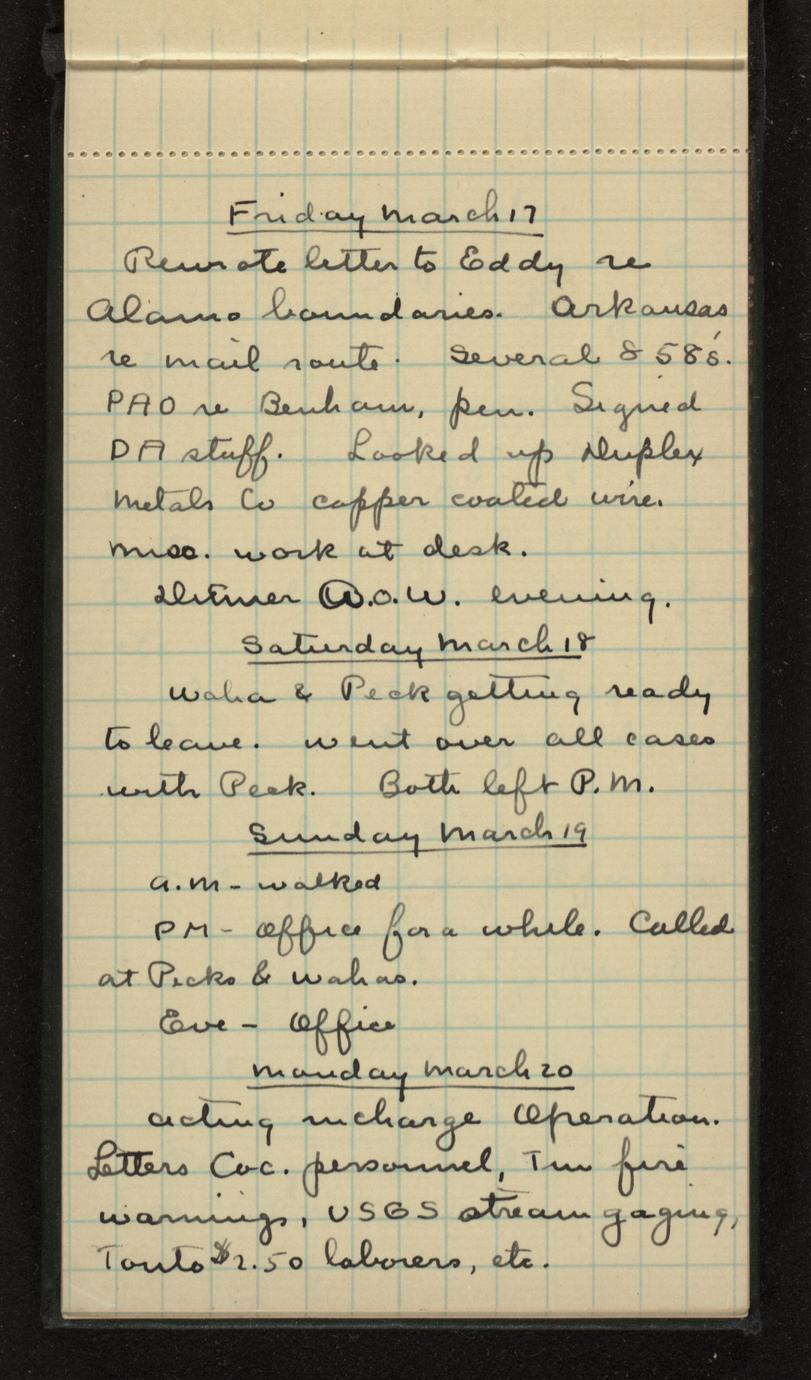 Friday March 17
Rewrote letter to Eddy re
Alamo boundaries. Arkansas
re mail route. Several 858's.
PAO re Benham, pen. Signed
DA stuff. Looked up Duplex
Metals Co copper coated wire.
Misc. work at desk.
Ditmer W.O.W. evening.
Saturday March 18
Waha & Peck getting ready
to leave. Went over all cases
with Peck. Both left P.M.
Sunday March 19
A.M - walked
PM - Office for a while. Called
at Pecks & Wahas.
Eve - Office
Monday March 20
Acting incharge Operation.
Letters Coc. personnel, fire
warnings, USGS stream gaging,
Tonto $2.50 laborers, etc.